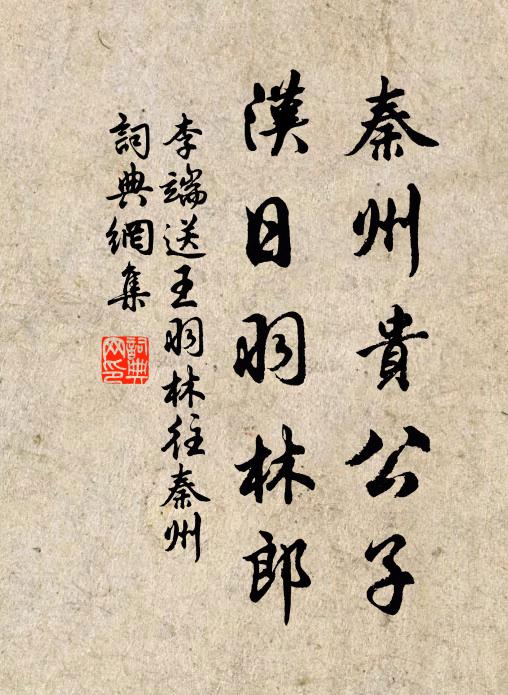 秦州貴公子
漢日羽林郎
李端送王羽林往秦州
詞典網集
詞典網印